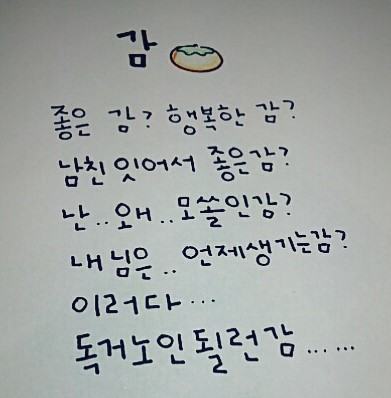 감
좋은 감? 행복한 감?
남친 잇어서 좋은감?
난.. 왜.. 모쏠인감?
내님은.. 언제생기는감?
이러다...
독거노인될런감......